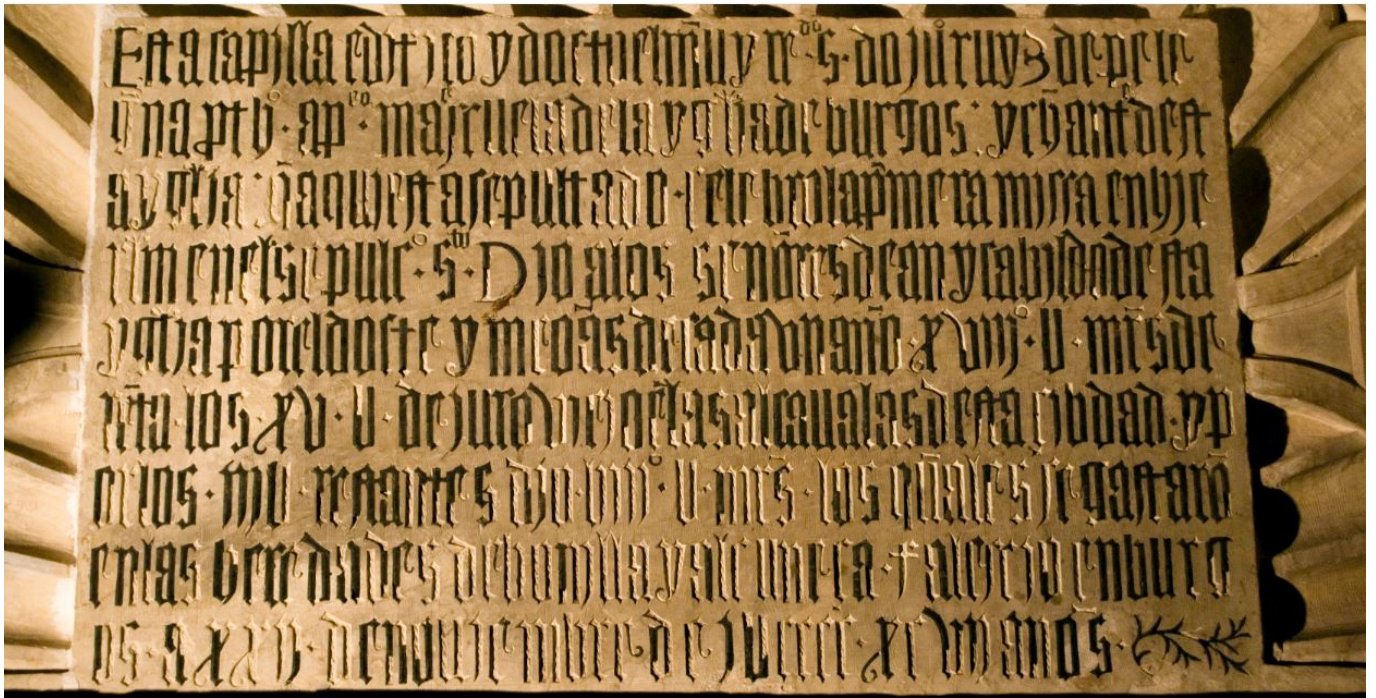 Esta capilla edifico y doto el muy re^do s. do ju^o ruyz de pele
gna ptho. ap^co. maior uiela de la ygl^ia de burgos: y chantr^e dest
a ygl^ia: q̃ aqui esta sepultado. celebro la p^imera missa en hie
rl'm en el s sepulc^o. s^to. Dio a los señores dean y cabildo desta
ygl^ia por el dote y me^os de cada vn año. xviij^o. U. mr̃s de
rẽta. los. xv. U. de juro viejo ẽ las alcaualas desta cibdad. y p
or los. iijU. restantes dio. viij^o. U. mr̃s. los q̃ales se gastarõ
en las heredades de buniella y alcunera. falecio en burg
os. a xxv. de nouiembre. de jU cccc. xcvij años.